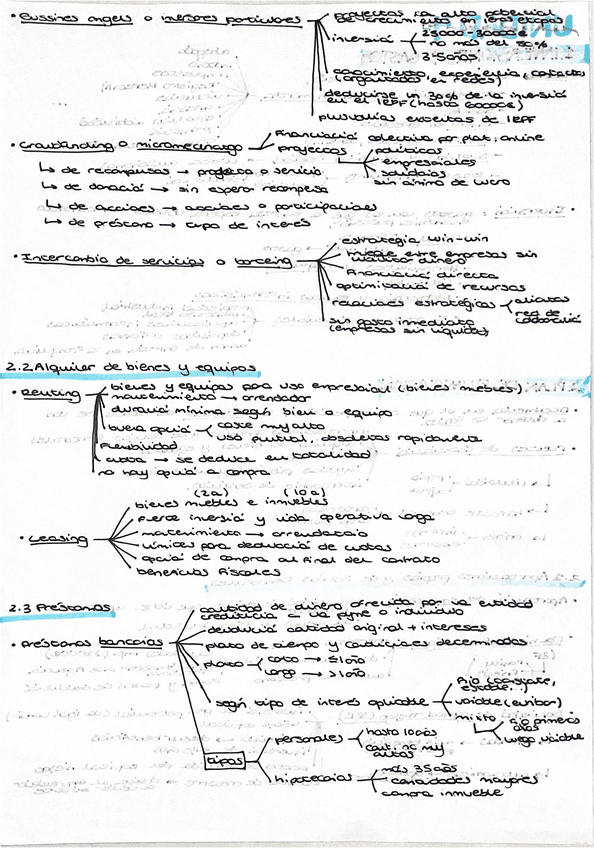 • Bussines angels o inversores particulares
proyectos ca alto potencial
de crecimiento en 1eras etapas
inversión
25000-30000€
no más del 50%
3-5 años
conocimiento, experiencia, contactos
(organizados en redes)
deducirse un 30% de la inversión
en el IRPF (hasta 60000€)
plusvalías exentas de IRPF
• Crowdfunding o micromecenazgo
Financiació colectiva por plat. online
proyectos
políticos
empresariales
solidarios
sin ánimo de lucro
↳ de recompensas → producto o servicio
↳ de donació → sin esperar recompensa
↳ de acciones → acciones o participaciones
↳ de préstamo → tipo de interés
• Intercambio de servicios o barteing
estrategia win-win
trueque entre empresas sin
utilizar dinero
financiació directa
optimizació de recursos
relaciones estratégicas
alianzas
red de
colaboració
sin gasto inmediato
(empresas sin liquidez)
2.2 Alquiler de bienes y equipos
• Renting
bienes y equipos para uso empresarial (bienes muebles)
mantenimiento → arrendador
duració mínima según bien o equipo
buena opció
coste muy alto
uso puntual, obsoletos rápidamente
flexibilidad
cuota → se deduce en totalidad
no hay opció a compra
• Leasing
(2a) (10a)
bienes muebles e inmuebles
fuerte inversió y vida operativa larga
mantenimiento → arrendatario
límites para deducció de cuotas
opció de compra al final del contrato
beneficios fiscales
2.3 Préstamos
• Préstamos bancarios
cantidad de dinero ofrecida por ua entidad
crediticia a ua pyme o individuo
devolució cantidad original + intereses
plazo de tiempo y condiciones determinados
plazo
corto → ≤1año
largo → >1año
según tipo de interés aplicable
fijo (constante,
estable...)
variable (euribor)
mixto
fijo primeros
años
luego variable
tipos
personales
hasta 10 años
cant. no muy
altas
hipotecarios
más 35 años
cantidades mayores
compra inmueble